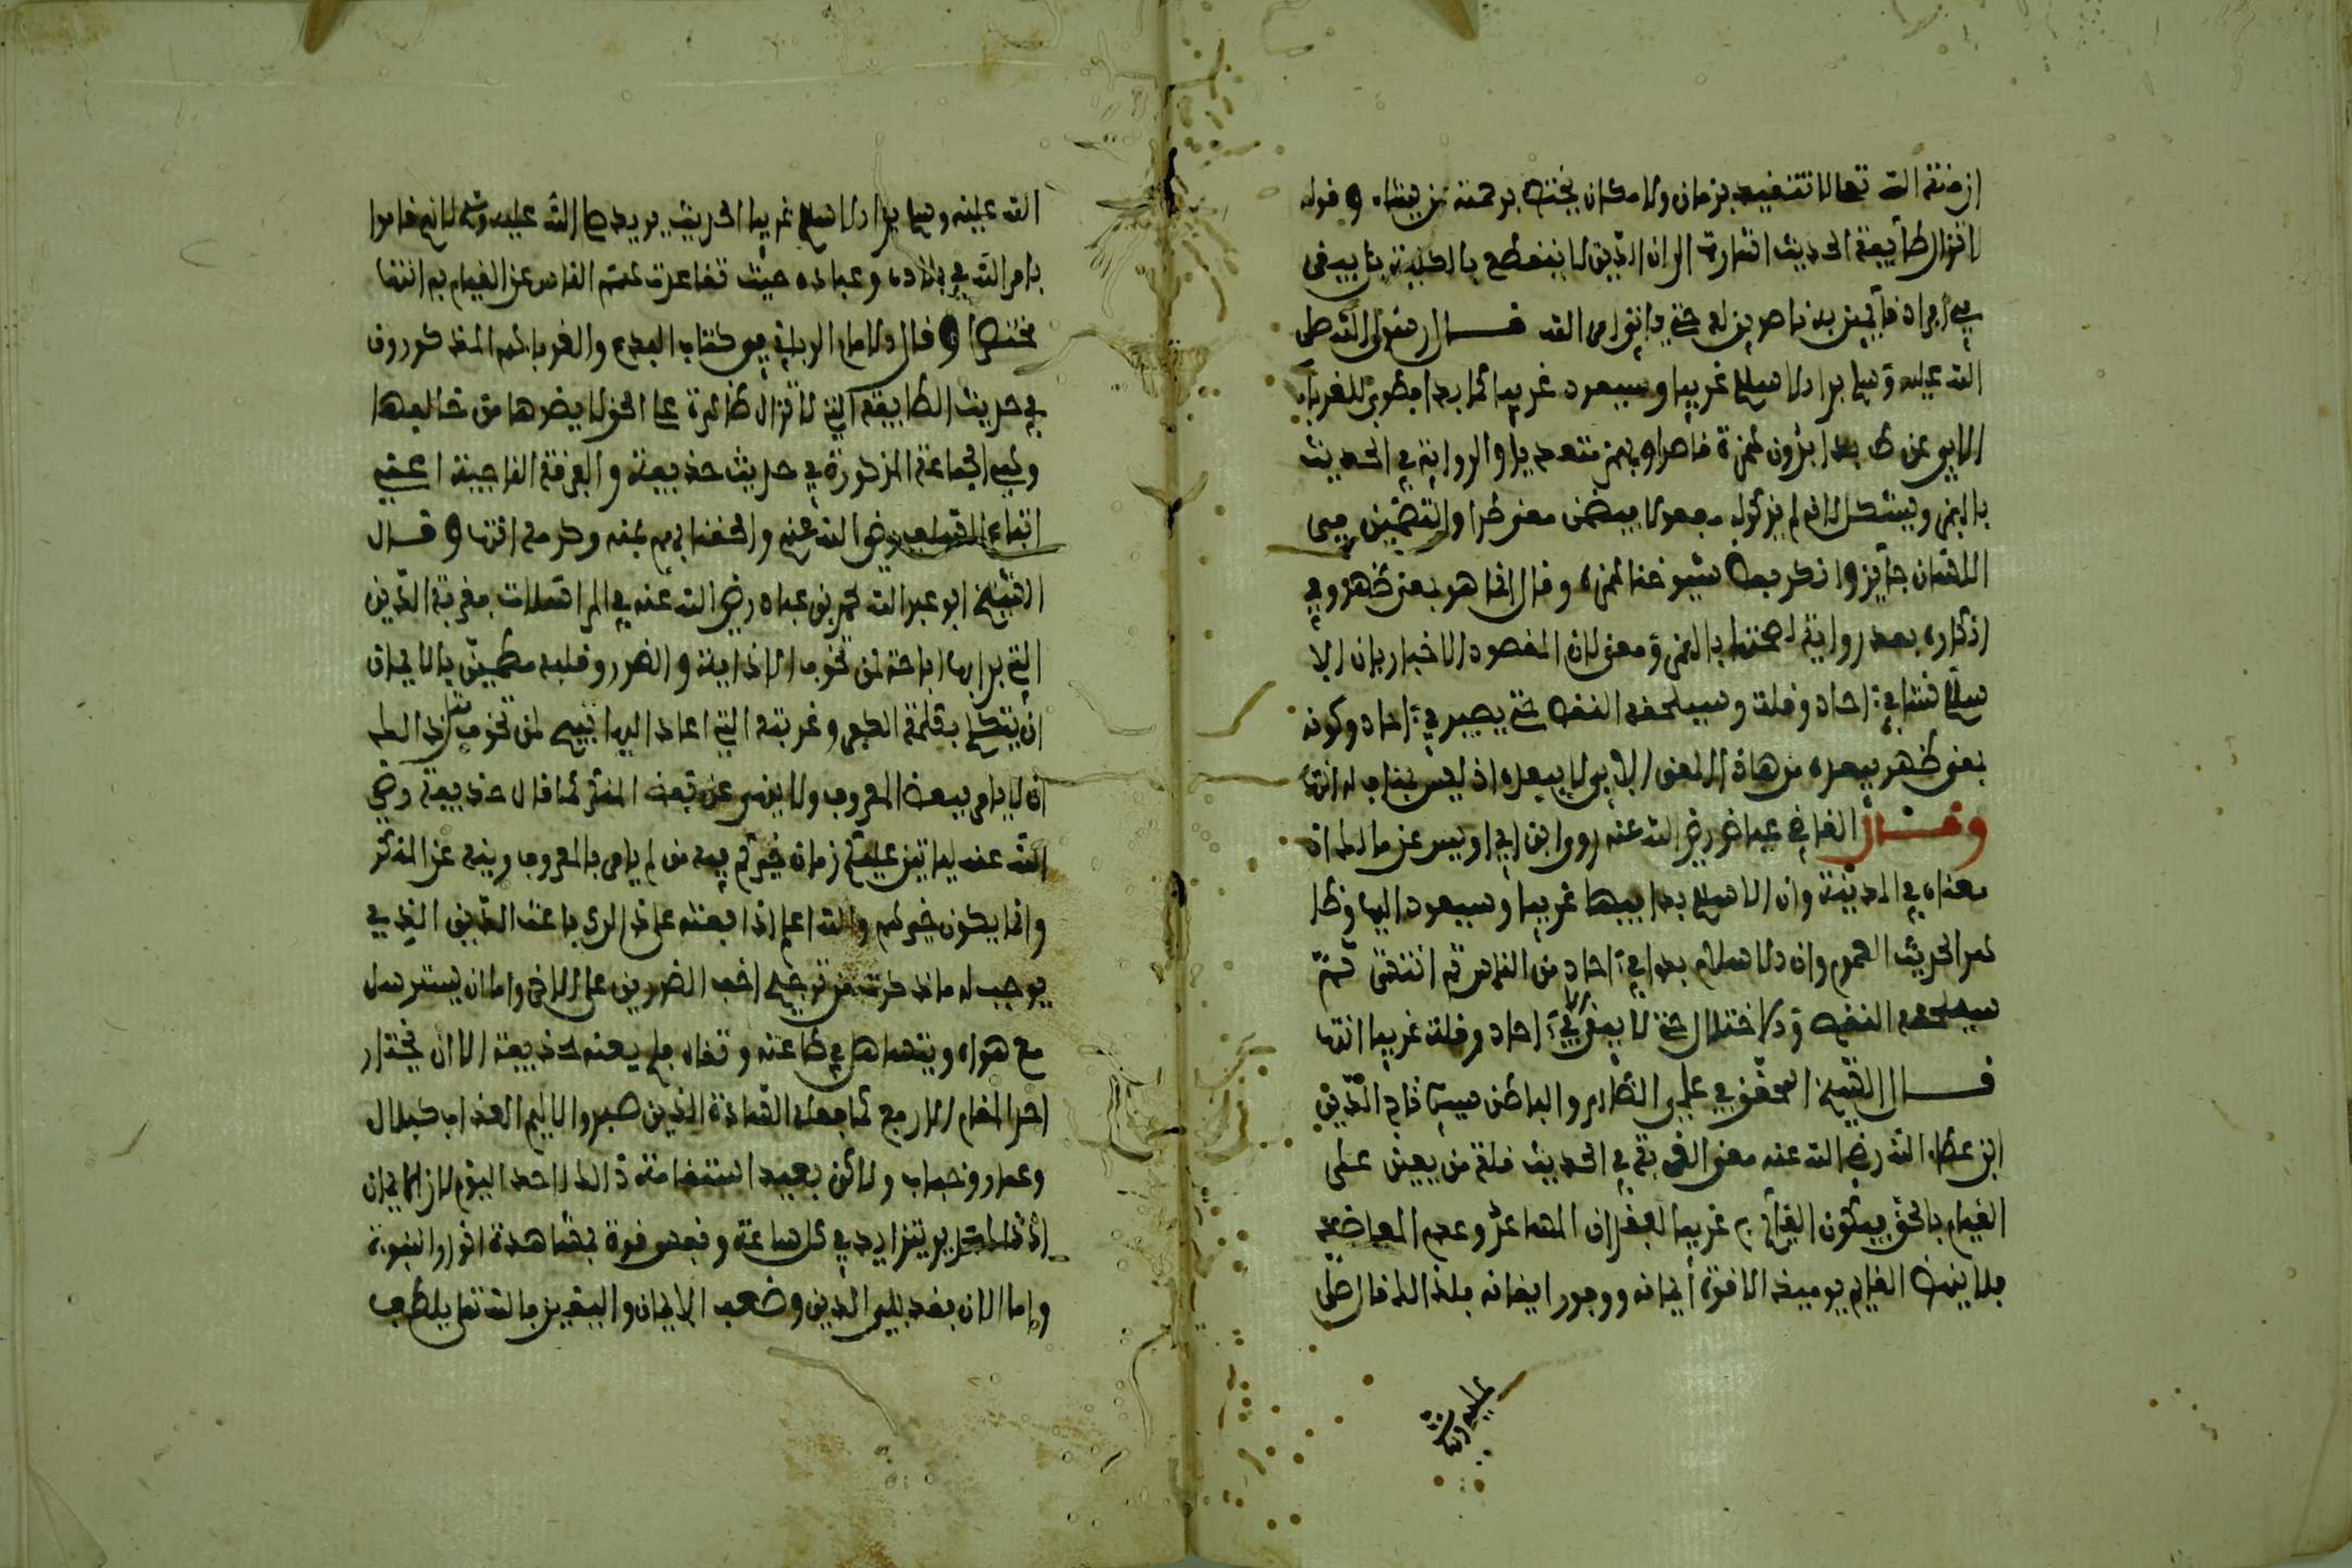 ازمنة الله تعالى لا تتقيد بزمان ولا مكان يختص برحمته من يشاء وقوله
لا تزال طائفة الحديث اشارة الى ان الدين لا ينقطع بالكلية بل يبقى
في افراد قائمين به ناصرين له حتى ياتي امر الله قال رسول الله صلى
الله عليه وسلم بدا الاسلام غريبا وسيعود غريبا كما بدا فطوبى للغرباء
الابي عن ط بدا يرون همزة قاصرا وبهمز متعديا والرواية في الحديث
بالهمز ويشكل لانه لم يذكر له مفعولا يتضمن معنى طرا والتضمين في
اللسان جائز وانكر بعض شيوخنا الهمزة وقال انما هو بمعنى ظهر وفي
انكاره بعد رواية صحتها بالهمز ومعنى لان المقصود الاخبار بان الا
سلام نشا في احاد وقلة وسيلحقه النقص حتى يصير في احاد وكونه
بمعنى ظهر يبعد من هاذا المعنى الابي لا يبعده اذ ليس بمناف له انتهى
وقال القاضي عياض رضي الله عنه روى ابن ابي اويس عن مالك ان
معناه في المدينة وان الاسلام بدا بها غريبا وسيعود اليها وظا
هر الحديث العموم وان الاسلام بدا في احاد من الناس ثم انتشر ثم
سيلحقه النقص والاختلال حتى لا يبقى الا في احاد وقلة غريبا انتهى
قال الشيخ المحقق في علمي الظاهر والباطن سيدي تاج الدين
ابن عطاء الله رضي الله عنه معنى الغربة في الحديث قلة من يعين على
القيام بالحق فيكون القائم به غريبا لفقدان المساعد وعدم المعاضد
فلا ينهض القيام يوميذ الا قوة ايمانه ووفور ايقانه فلذالك قال صلى
عليه الله
الله عليه وسلم بدا الاسلام غريبا الحديث يريد صلى الله عليه وسلم لانهم قاموا
بامر الله في بلاده وعباده حيث تقاعدت همم الناس عن القيام به انتهى
مختصرا وقال الامام الرباني في كتاب البدع والغرباء هم المذكورون
في حديث الطايفة التي لا تزال ظاهرة على الحق لا يضرها من خالفها
وهي الجماعة المذكورة في حديث حذيفة والفرقة الناجية اعني
اتباع السلف رضي الله عنهم والحقنا بهم بمنه وكرمه انتهى وقال
الشيخ ابو عبد الله محمد بن عباد رضي الله عنه في المراسلات فغربة الدين
التي يرا بها اباحة لمن تخوف الاذاية والضرر وقلبه مطمين بالايمان
ان يتكلم بكلمة الكفر وغربته التي اعاد اليها تبيح لمن تخوف مثل ذالك
ان لا يامر ببعض المعروف ولا ينهى عن بعض المنكر كما قال حذيفة رضي
الله عنه لياتين عليكم زمان خيركم فيه من لم يامر بالمعروف وينه عن المنكر
وانما يكون خيرهم والله اعلم اذا بعثه على ذالك باعث الدين الذي
يوجب له ماذكرت من ترجيح اخف الضررين على الاخر واما ان يسترسل
مع هواه ويتساهل في طاعته وتقاه فلم يعنه حذيفة الا ان يختار
احد المقام الارفع كما فعله السادة الذين صبروا لاليم العذاب كبلال
وعمار وخباب ولاكن بعيد استقامة ذالك لاحد اليوم لان الايمان
اذ ذاك يتزايد في كل ساعة وفيهم قوة بمشاهدة انوار النبوة
واما الان فقد بلي الدين وضعف الايمان واليقين فالله تعلى يلطف